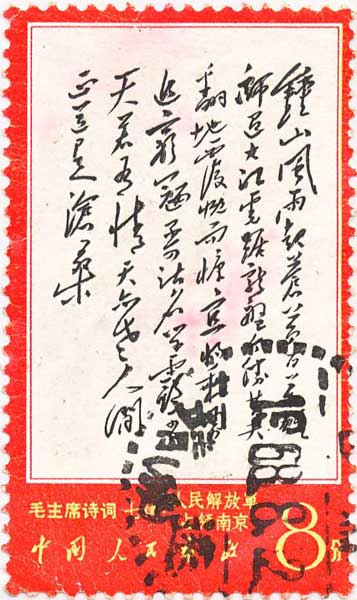 鍾山風雨起蒼黃百萬雄
師過大江虎踞龍盤今勝昔天
翻地覆慨而慷宜將剩勇
追窮寇不可沽名學霸王
天若有情天亦老人間
正道是滄桑
毛主席诗词·七律 人民解放军
占领南京
中国人民邮政
8分